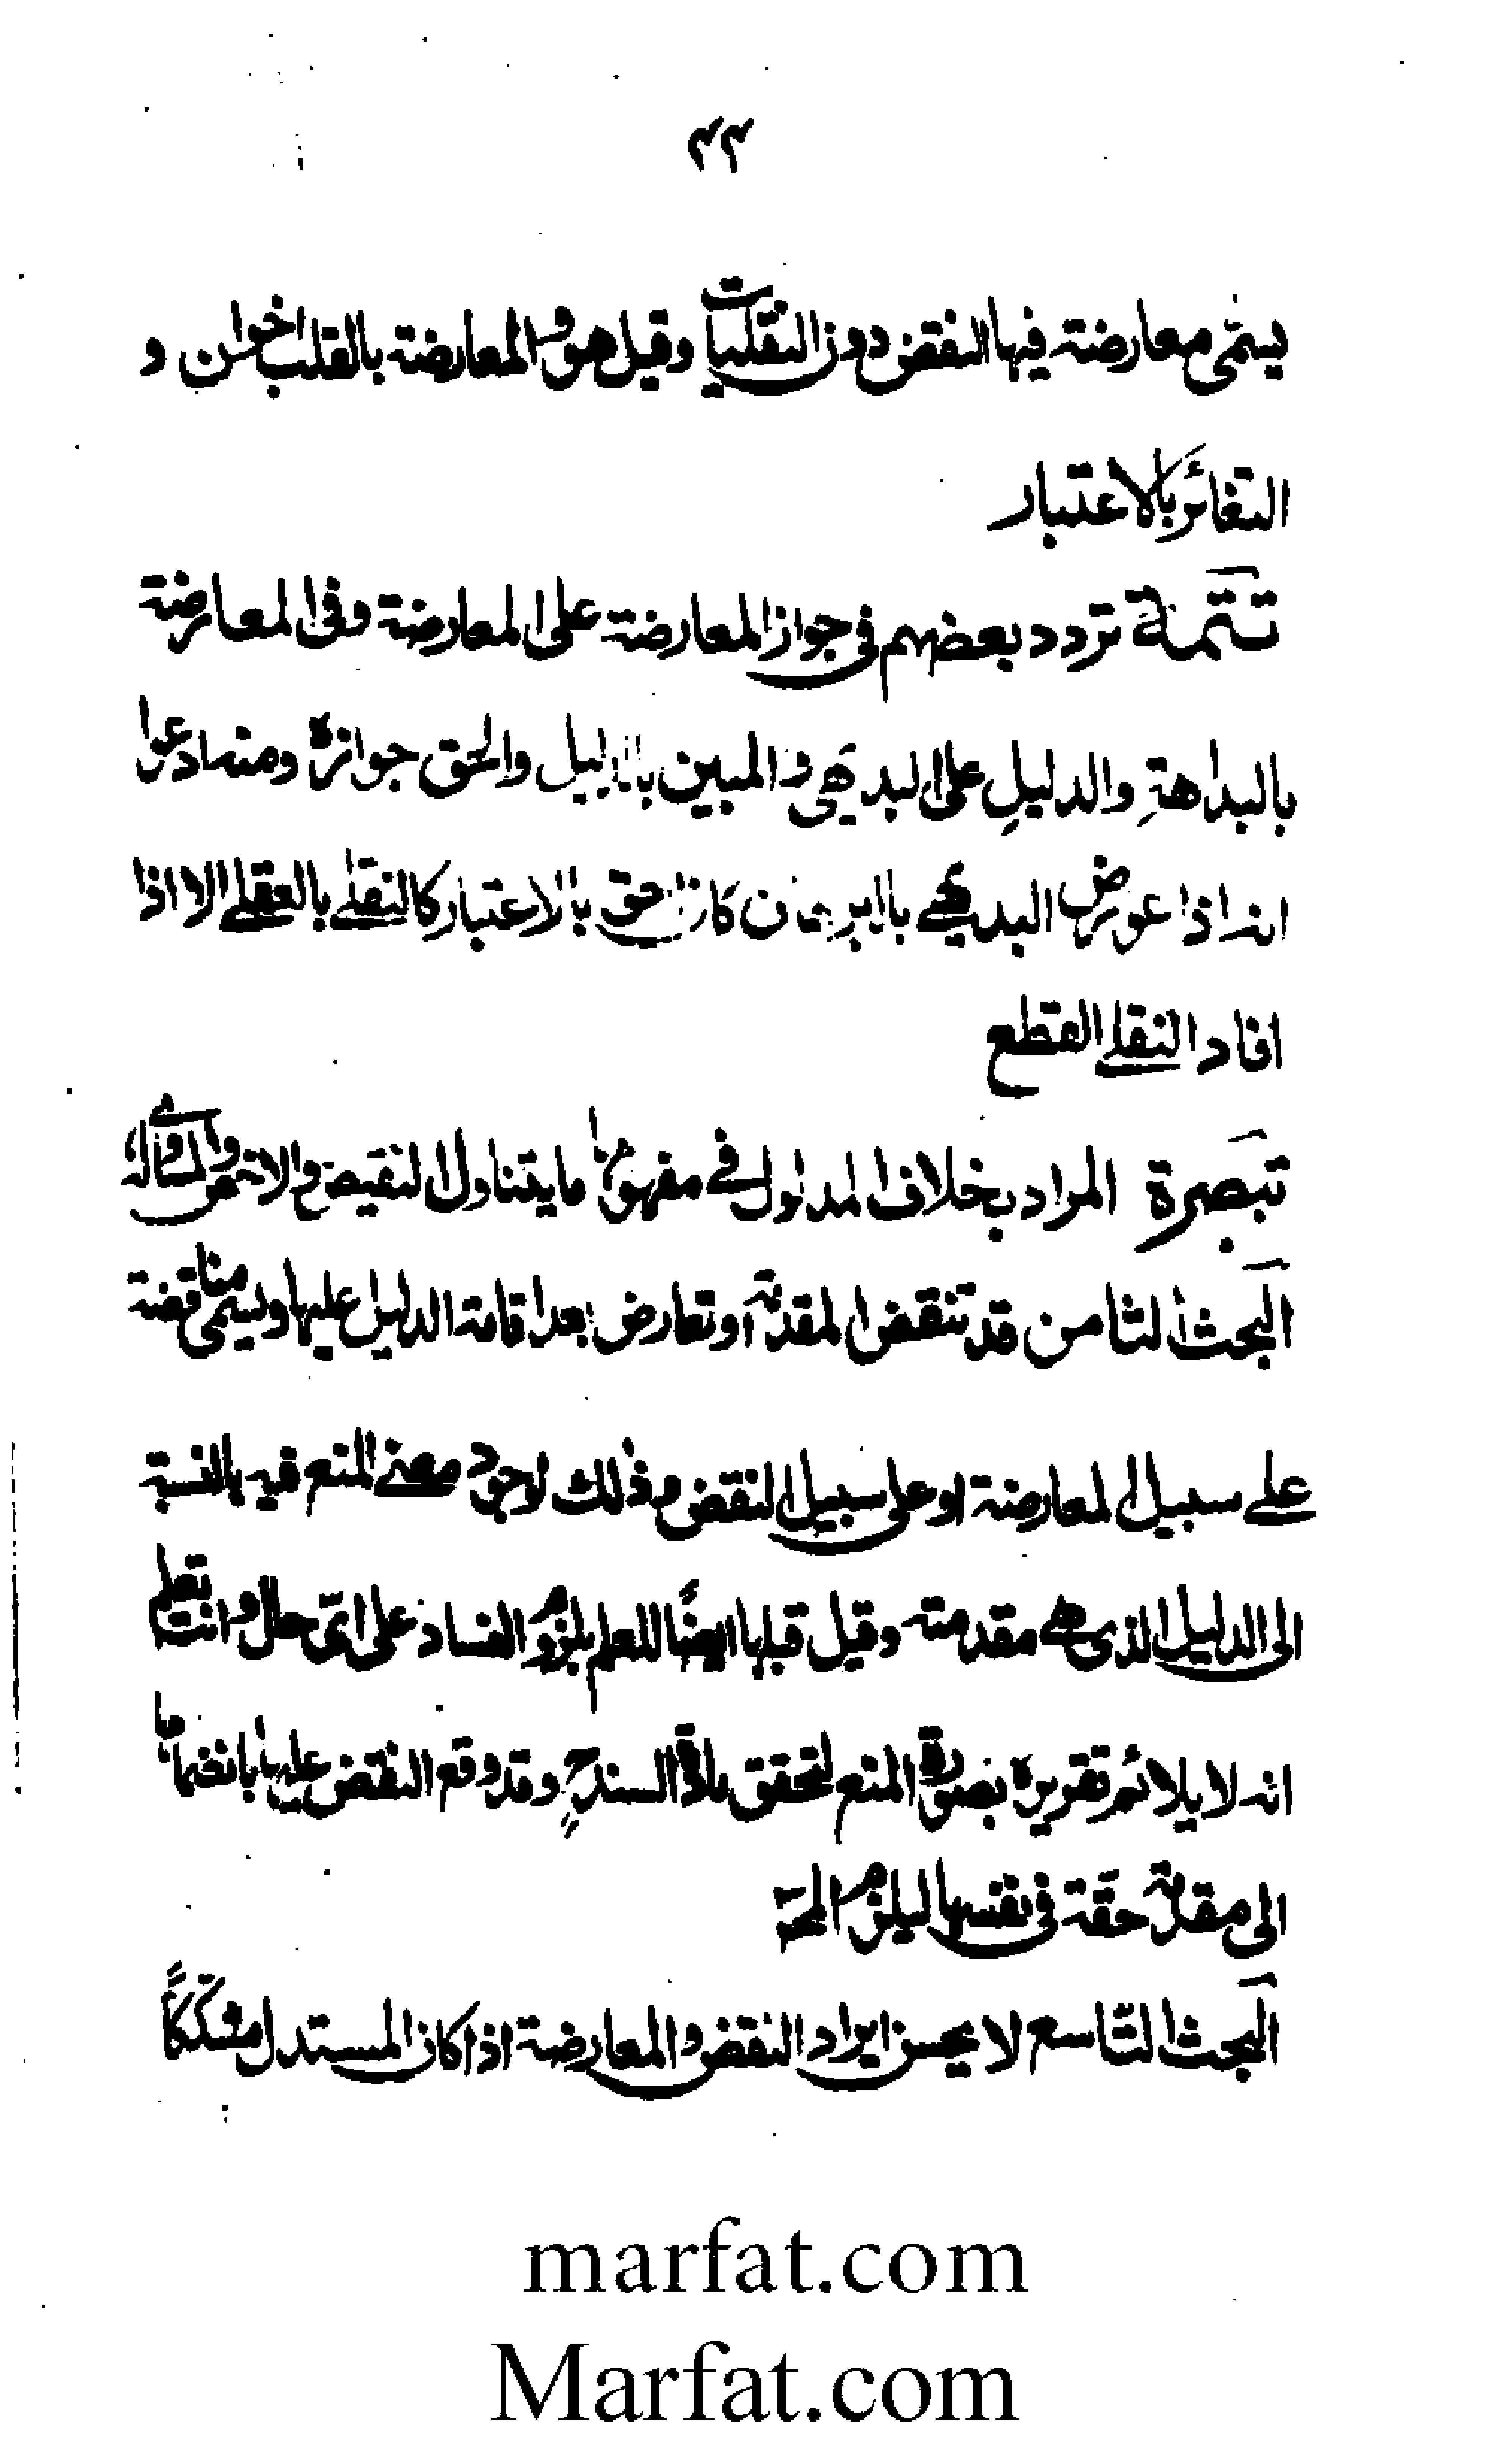 ۴۴
يسمى معارضة فيها النقض دون النقليات وقيل هو والمعارضة بالقلب اخوان و
التغائر بالاعتبار
تتمة تردد بعضهم في جواز المعارضة على المعارضة وفى المعارضة
بالبداهةِ والدليلِ على البديهى والمبين بالدليل والحق جوازه ومنه ادعوا
انه اذا عورض البديهے بالبرهان كان احق بالاعتبار كالنقلے بالعقلے الا اذا
افاد النقلے القطع
تبصرة المراد بخلاف المدلول فے مفهومها ما يتناول النقيض والاخص والمساوى له
البحث الثامن قد تنقض المقدمة او تعارض بعد اقامة الدليل عليها ويسمى مناقضة
علے سبيل المعارضة او على سبيل النقض وذلك لوجود معنے المنع فيه بالنسبة
الى الدليل الذى هے مقدمته وقيل قبلها ايضًا للعلم بلزوم الفساد على اىّ حال وانت تعلم
انه لا يلائم تقريره بصورة المنع لتحقق مادة السند ح وقد وقع النقض عليها بانضمامها
الى مقدمة حقّة في نفسها ليلزم المح
البحث التّاسع لا يحسن ايراد النقض والمعارضة اذا كان المستدل مشكّكًا
marfat.com
Marfat.com